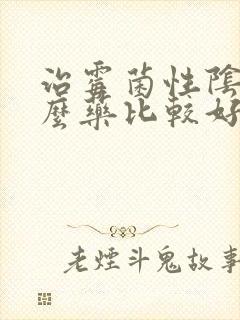 治霉菌性陰
麼藥比較好
老煙斗鬼故事